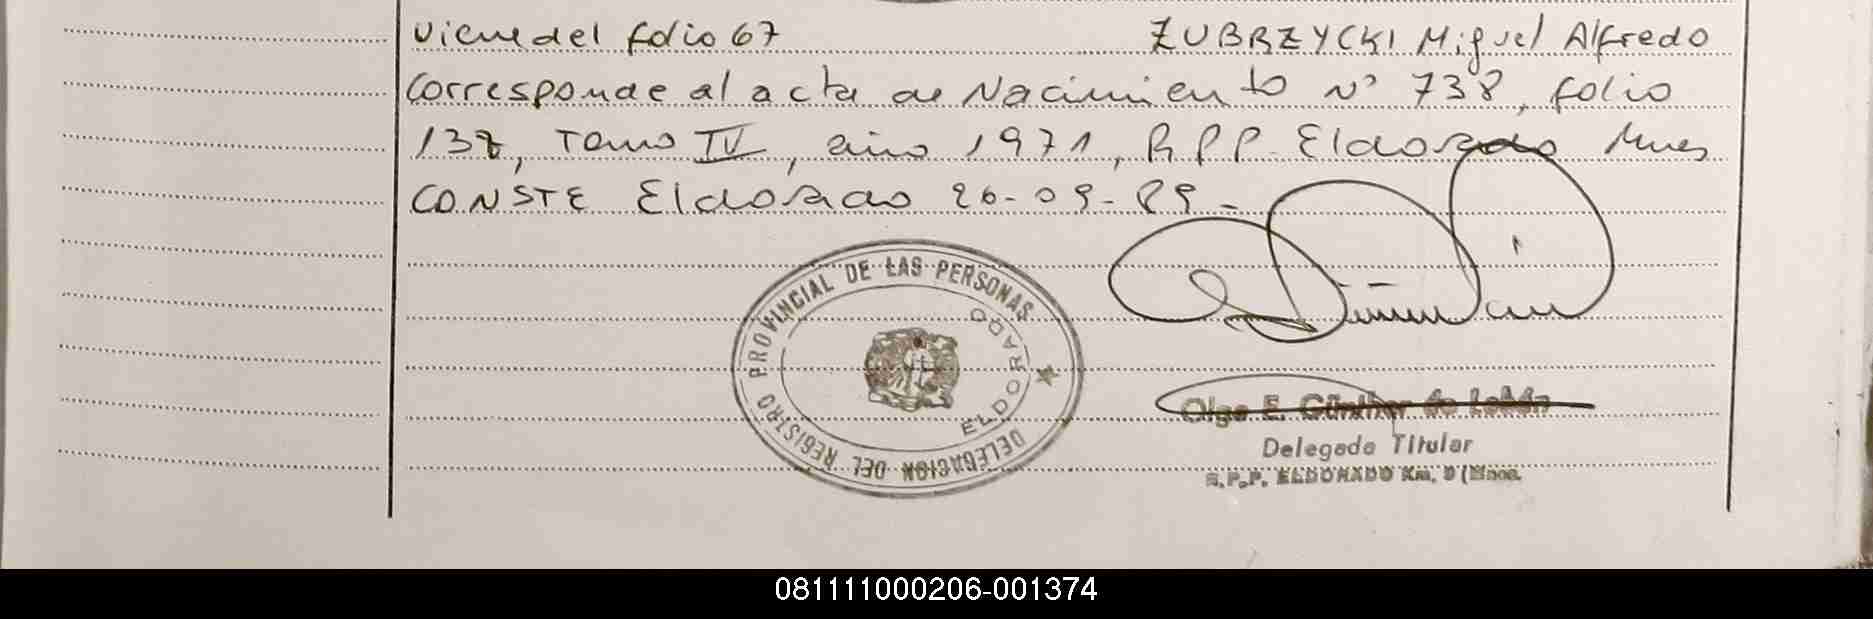 Viene del folio 67 ZUBRZYCKI Miguel Alfredo
Corresponde al acta de Nacimiento Nº 738, folio
137, Tomo IV, año 1971, R P P. Eldorado Mnes
CONSTE Eldorado 26-09-89.-
REGISTRO PROVINCIAL DE LAS PERSONAS
DELEGACION DEL
ELDORADO
Olga E. Günther de
Delegada Titular
R.P.P. ELDORADO Km. 9 (Mnes.
081111000206-001374